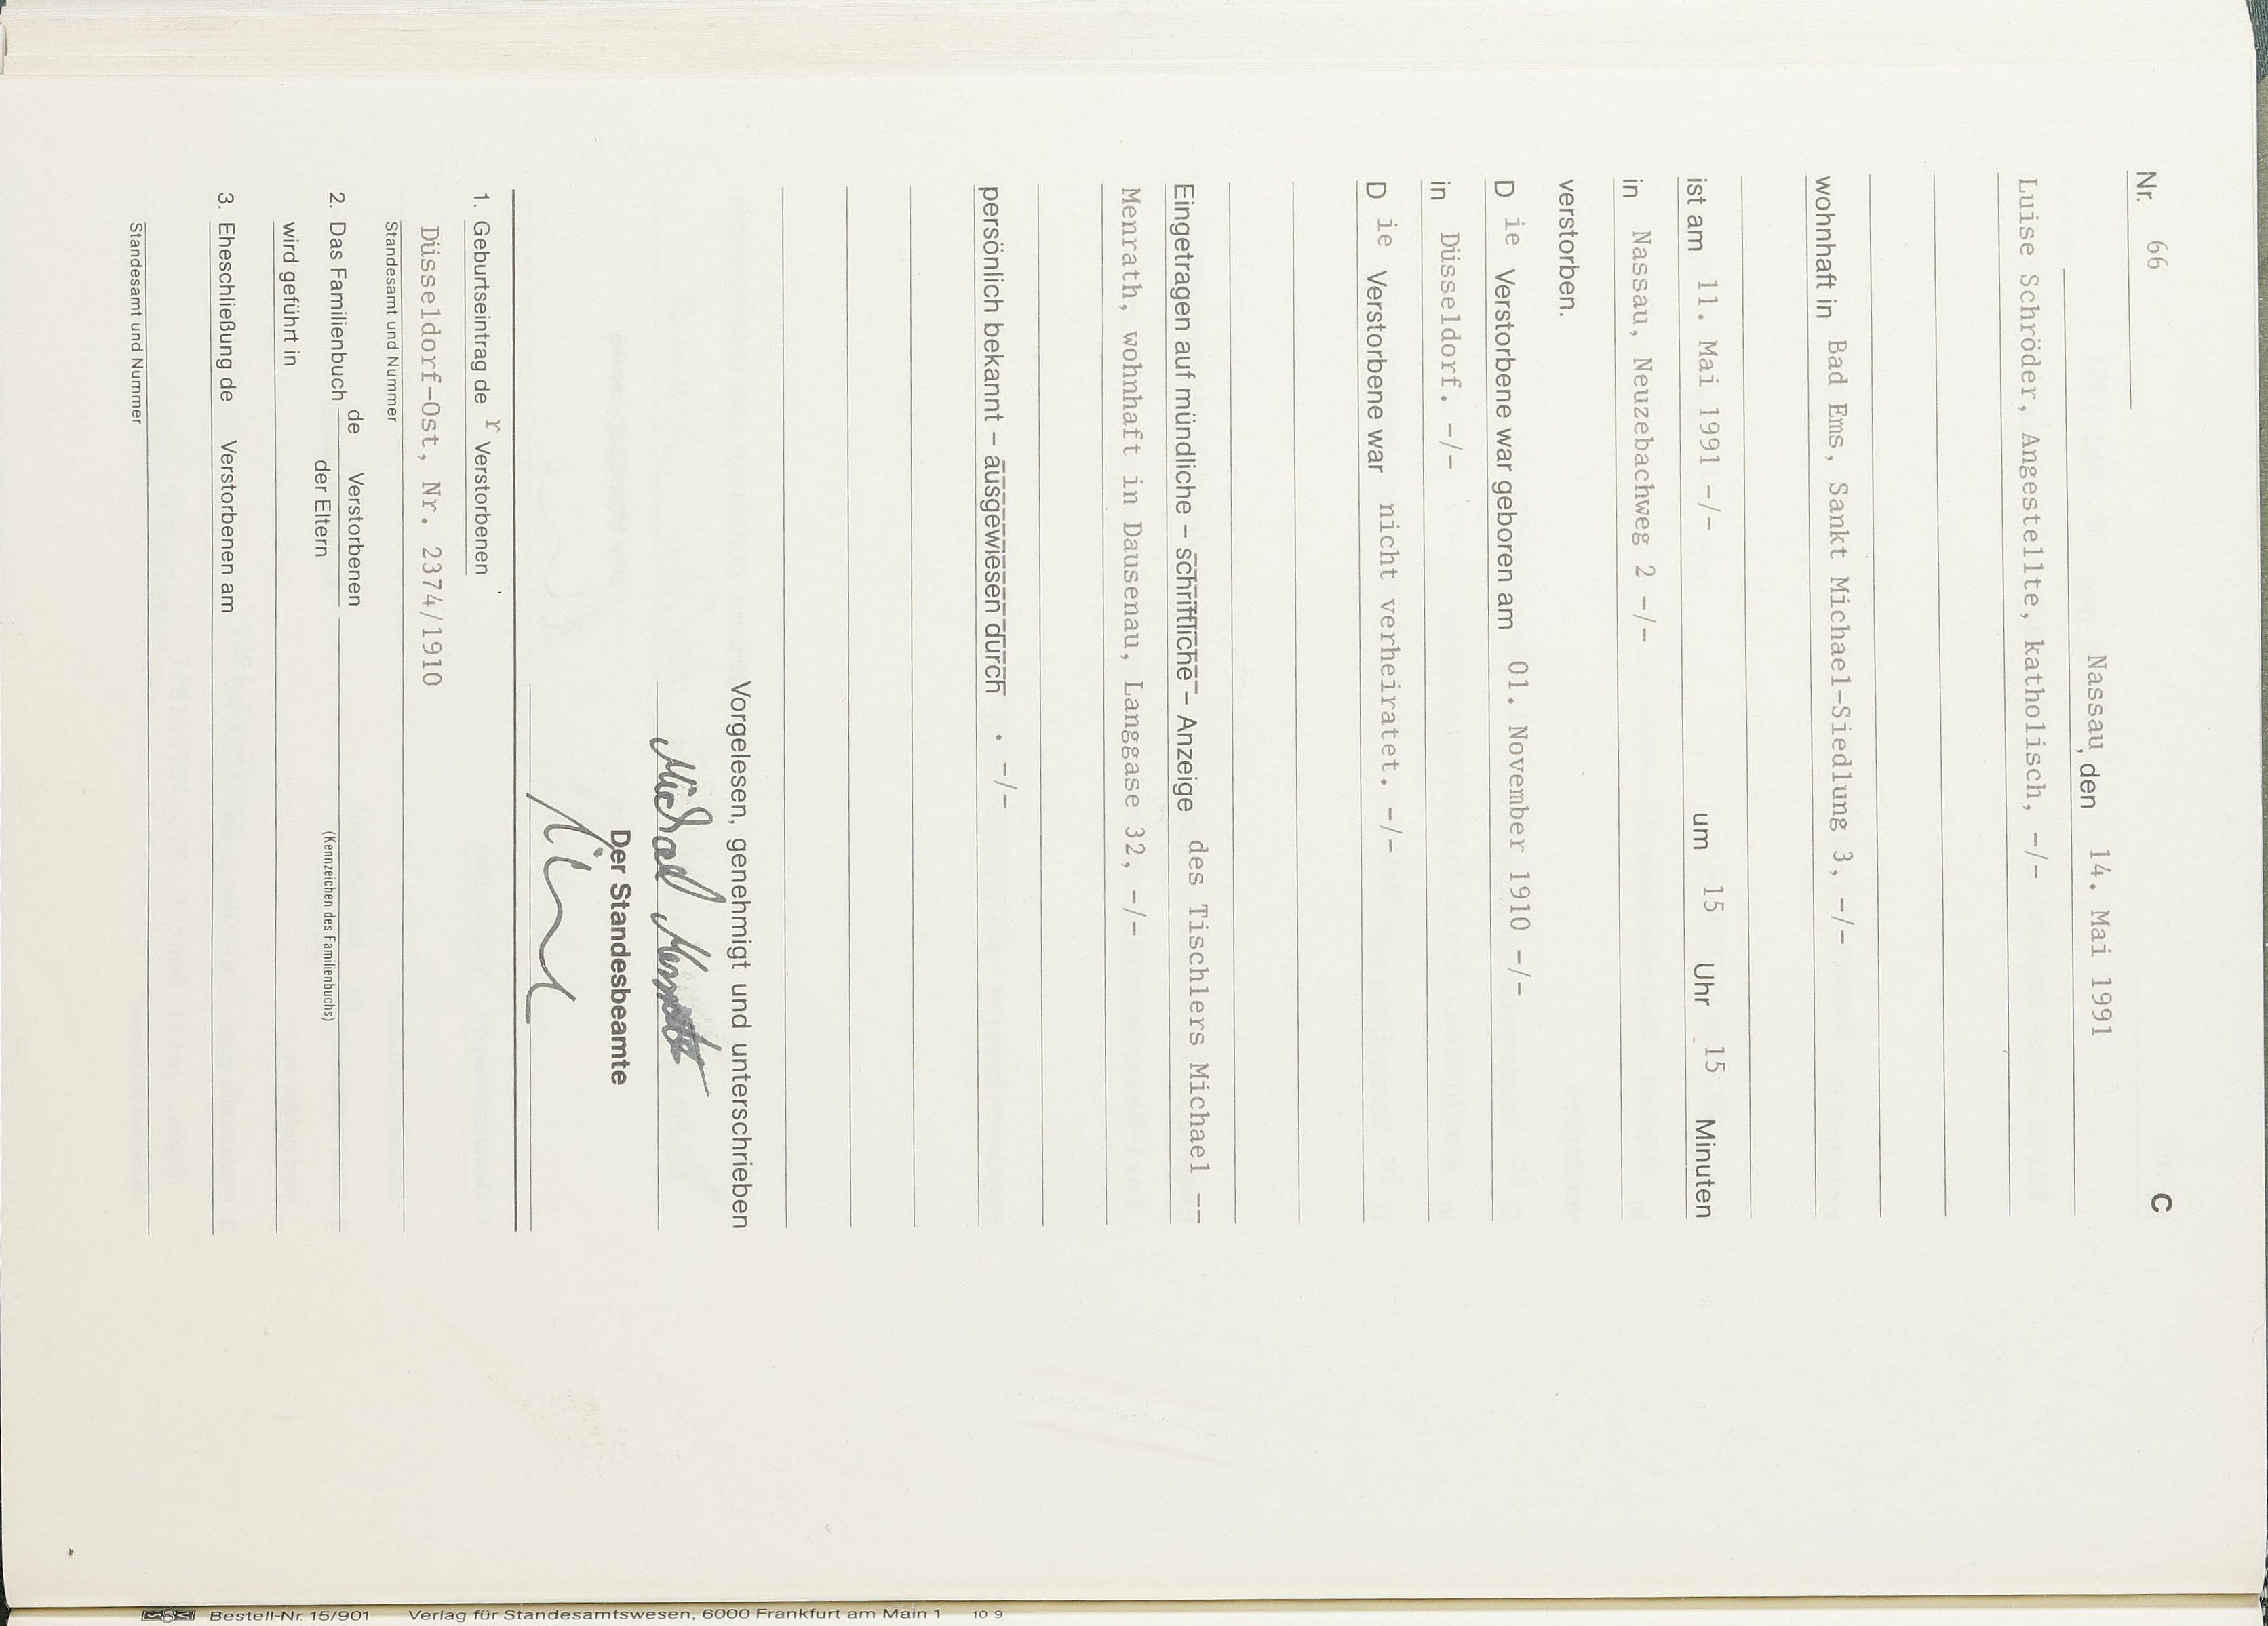 Nr. 66 C
Nassau, den 14. Mai 1991
Luise Schröder, Angestellte, katholisch, -/-
wohnhaft in Bad Ems, Sankt Michael-Siedlung 3, -/-
ist am 11. Mai 1991 -/- um 15 Uhr 15 Minuten
in Nassau, Neuzebachweg 2 -/-
verstorben.
D ie Verstorbene war geboren am 01. November 1910 -/-
in Düsseldorf. -/-
D ie Verstorbene war nicht verheiratet. -/-
Eingetragen auf mündliche – schriftliche – Anzeige des Tischlers Michael --
Menrath, wohnhaft in Dausenau, Langgase 32, -/-
persönlich bekannt – ausgewiesen durch . -/-
Vorgelesen, genehmigt und unterschrieben
Michael Menrath
Der Standesbeamte
1. Geburtseintrag de r Verstorbenen
Düsseldorf-Ost, Nr. 2374/1910
Standesamt und Nummer
2. Das Familienbuch de Verstorbenen
der Eltern
(Kennzeichen des Familienbuchs)
wird geführt in
3. Eheschließung de Verstorbenen am
Standesamt und Nummer
Bestell-Nr. 15/901 Verlag für Standesamtswesen, 6000 Frankfurt am Main 1 10 9